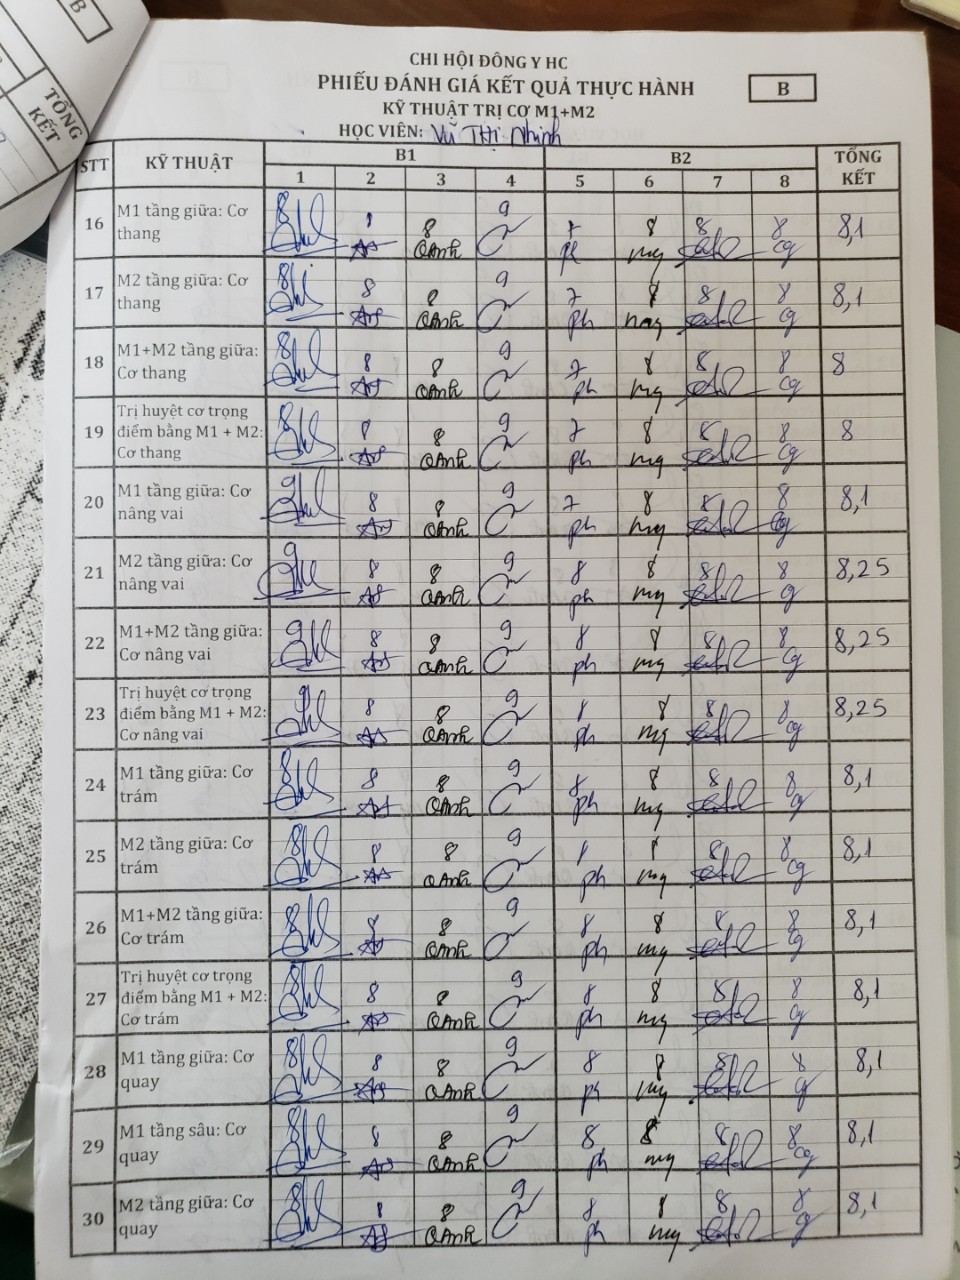 B
TỔNG
KẾT
CHI HỘI ĐÔNG Y HC
PHIẾU ĐÁNH GIÁ KẾT QUẢ THỰC HÀNH
B
KỸ THUẬT TRỊ CƠ M1+M2
HỌC VIÊN: Vũ Thị Nhinh
STT KỸ THUẬT B1 B2 TỔNG
KẾT
1 2 3 4 5 6 7 8
16 M1 tầng giữa: Cơ
thang
8 8 8 9 7 8 8 8 8,1
OAnh ph my cg
17 M2 tầng giữa: Cơ
thang
8 8 8 9 7 8 8 8 8,1
OAnh ph my cg
18 M1+M2 tầng giữa:
Cơ thang
8 8 8 9 7 8 8 8 8
OAnh ph my cg
19 Trị huyệt cơ trọng
điểm bằng M1 + M2:
Cơ thang
8 8 8 9 7 8 8 8 8
OAnh ph my cg
20 M1 tầng giữa: Cơ
nâng vai
9 8 8 9 7 8 8 8 8,1
OAnh ph my cg
21 M2 tầng giữa: Cơ
nâng vai
9 8 8 9 8 8 8 8 8,25
OAnh ph my cg
22 M1+M2 tầng giữa:
Cơ nâng vai
9 8 8 9 8 8 8 8 8,25
OAnh ph my cg
23 Trị huyệt cơ trọng
điểm bằng M1 + M2:
Cơ nâng vai
9 8 8 9 8 8 8 8 8,25
OAnh ph my cg
24 M1 tầng giữa: Cơ
trám
8 8 8 9 8 8 8 8 8,1
OAnh ph my cg
25 M2 tầng giữa: Cơ
trám
8 8 8 9 8 8 8 8 8,1
OAnh ph my cg
26 M1+M2 tầng giữa:
Cơ trám
8 8 8 9 8 8 8 8 8,1
OAnh ph my cg
27 Trị huyệt cơ trọng
điểm bằng M1 + M2:
Cơ trám
8 8 8 9 8 8 8 8 8,1
OAnh ph my cg
28 M1 tầng giữa: Cơ
quay
8 8 8 9 8 8 8 8 8,1
OAnh ph my cg
29 M1 tầng sâu: Cơ
quay
8 8 8 9 8 8 8 8 8,1
OAnh ph my cg
30 M2 tầng giữa: Cơ
quay
8 8 8 9 8 8 8 8 8,1
OAnh ph my cg